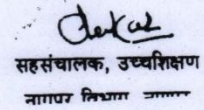 सहसंचालक, उच्चशिक्षण
नागपूर विभाग नागपूर